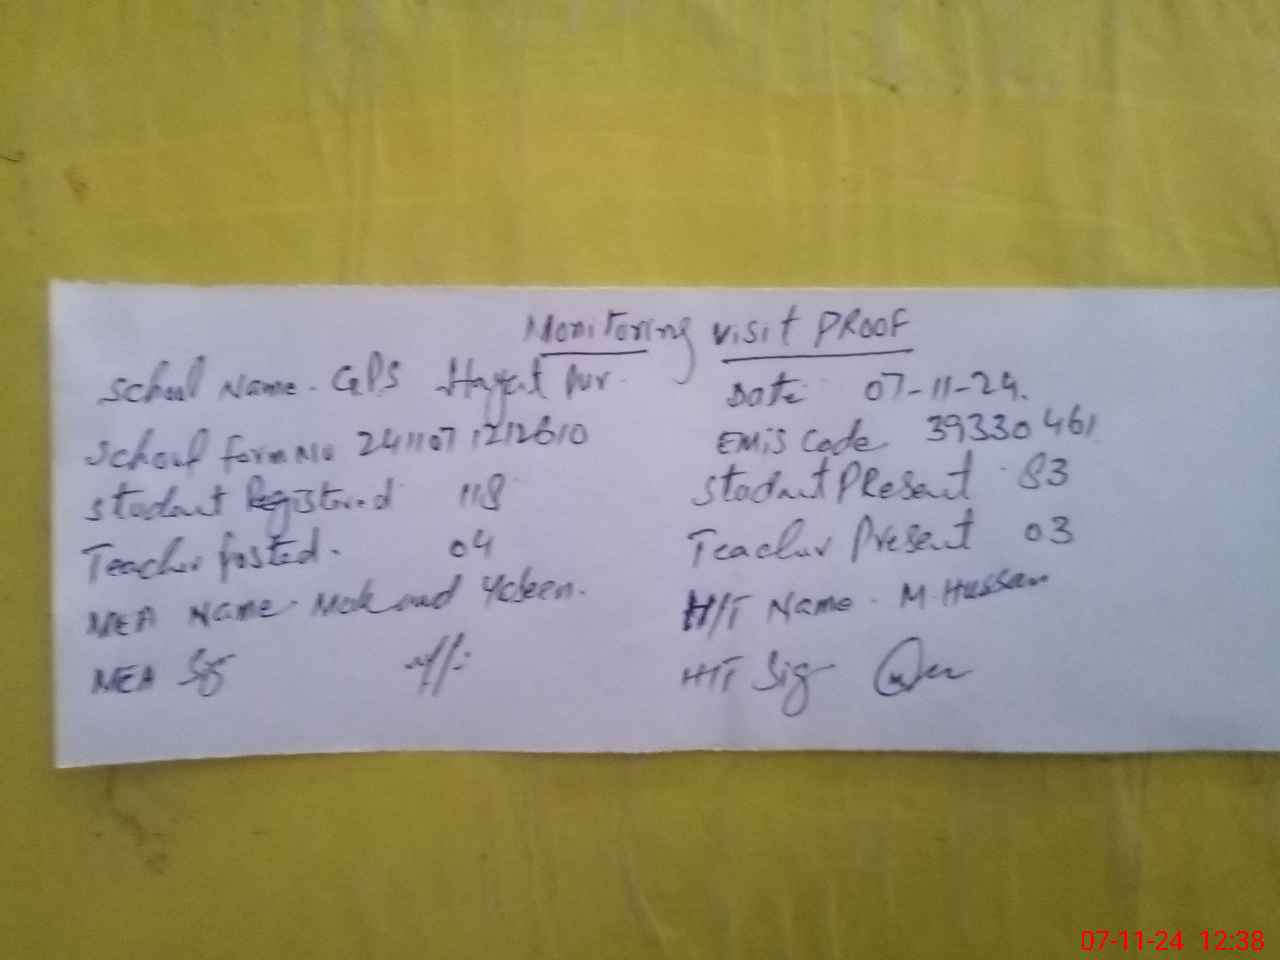 Monitoring visit PROOF
School Name. GPS Hayat Pur. Date 07-11-24.
School form No 241107 1212610 EMiS Code 39330461
Student Registered 118 Student Present 83
Teacher Posted. 04 Teacher Present 03
MEA Name. H/T Name. M. Hussan
MEA Sig H/T Sig
07-11-24 12:38